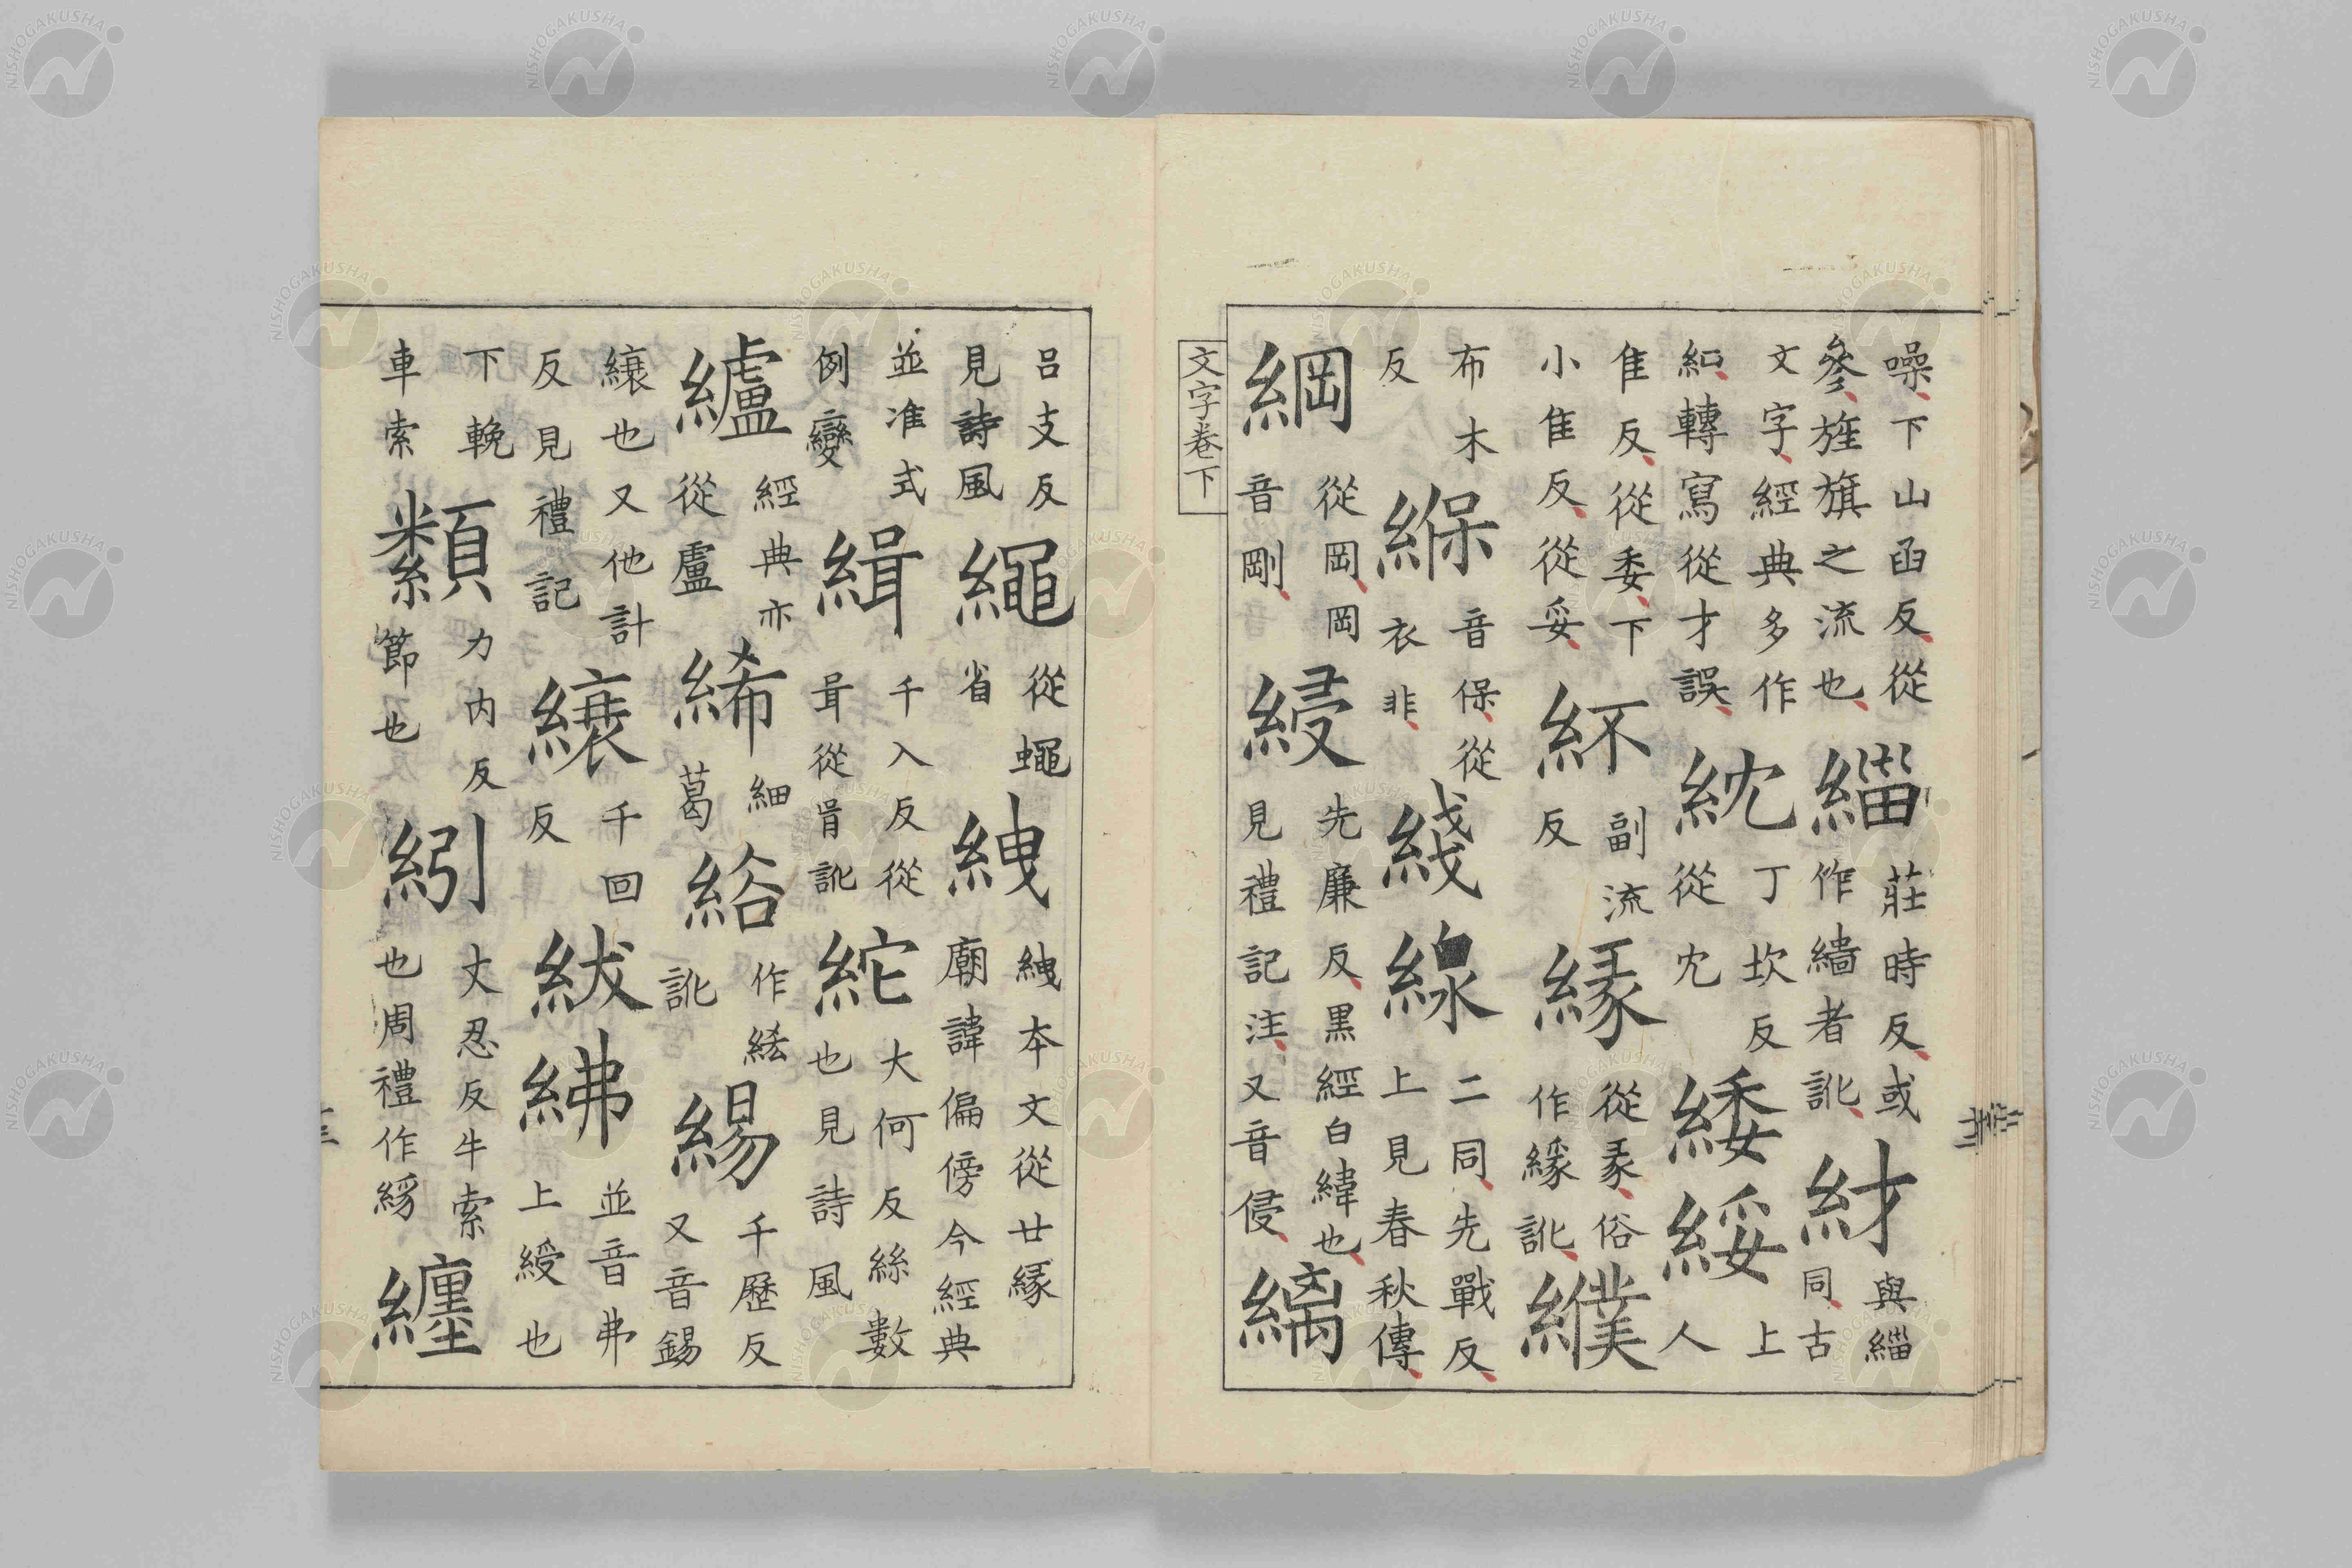 噪下山函反從參旌旗之流也緇莊時反或作繬者訛䊷與緇同古
文字經典多作轉寫從才誤紞丁坎反從冘緌綏上人
隹反從委下小隹反從妥紑副流反緣從彖俗作縁訛纀
布木反緥音保從衣非綫線二同先戰反上見春秋傳
綱從岡岡音剛綅先廉反黑經白緯也見禮記注又音侵縭
文字卷下
呂支反見詩風繩從蠅省絏絏本文從廿緣廟諱偏傍今經典
並准式例變緝千入反從咠咠從肙訛紽大何反絲數也見詩風
纑經典亦從盧絺細葛綌作綌訛緆千歷反又音錫
縗也又他計反見禮記縗千回反紱紼並音弗上綬也
下輓車索纇力内反節也紖丈忍反牛索也周禮作絼纏